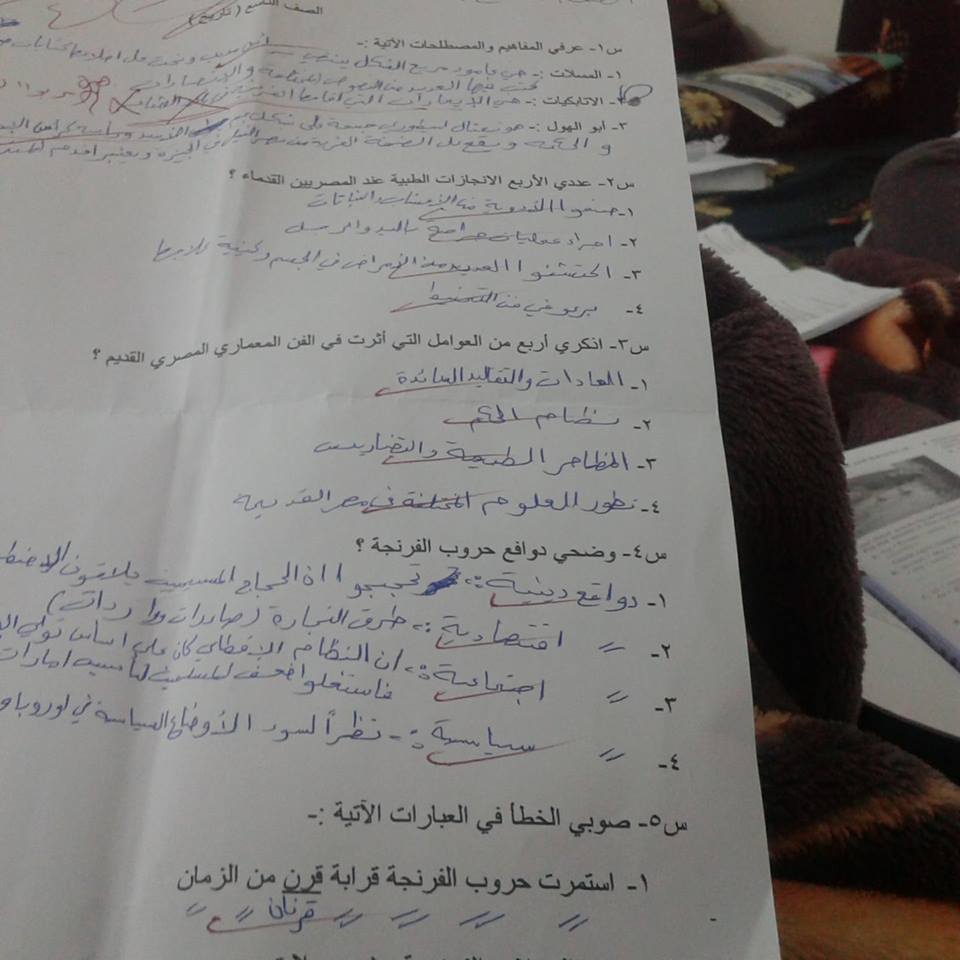 الصف التاسع (تاريخ)
س١- عرفي المفاهيم والمصطلحات الآتية :-
١- المسلات :- هي عامود مربع الشكل ينتهي
العديد من
٢- الاتابكيات :- هي الإمارات التي أقامها
٣- أبو الهول :- هو تمثال اسطوري جسمه على شكل
و الحكمة و يقع على الضفة الغربية من نهر النيل في الجيزة و يعتبر اقدم
س٢- عددي الأربع الانجازات الطبية عند المصريين القدماء ؟
١- صنعوا الأدوية من الأعشاب والنباتات
٢- اجراء عمليات جراحية باليد والرجل
٣- اكتشفوا العديد من الأمراض في الجسم وكيفية علاجها
٤- برعو في فن التحنيط
س٣- اذكري أربع من العوامل التي أثرت في الفن المعماري المصري القديم ؟
١- العادات والتقاليد السائدة
٢- نظام الحكم
٣- المظاهر الطبيعية والتضاريس
٤- تطور العلوم المختلفة في مصر القديمة
س٤- وضحي دوافع حروب الفرنجة ؟
١- دوافع دينية :- تحججوا ان الحجاج المسيحين يلاقون
٢- 〃 اقتصادية :- طرق التجارة (صادرات و واردات)
٣- 〃 اجتماعية :- ان النظام الإقطاعي كان على اساس تولي
فاستغلوا ضعف المسلمين لتأسيس امارات
٤- 〃 سياسية :- نظراً لسوء الأوضاع السياسة في اوروبا و
س٥- صوبي الخطأ في العبارات الآتية :-
١- استمرت حروب الفرنجة قرابة قرن من الزمان
〃 〃 〃 〃 قرنان 〃 〃